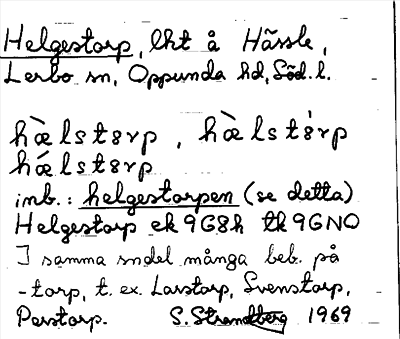 Helgestorp, lht å Hässle,
Lerbo sn, Oppunda hd, Söd. l.
hæ̀lstɜrp, hæ̀lstɜ̀rp
hǽlstɜrp
inb.: helgestorpen (se detta)
Helgestorp ek 9G8h tk 9GNO
I samma sndel många beb. på
-torp, t. ex. Larstorp, Svenstorp,
Perstorp. S. Strandberg 1969